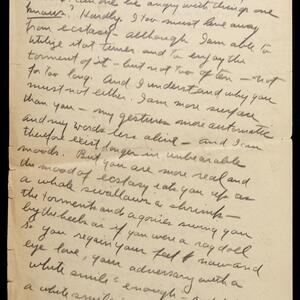 can one be angry with things one
knows. Hardly. I too must love away
from ecstasy - although I am able to
utilize it at times and to enjoy the
torment of it - but not too often - not
for too long. And I understand why you
must not either. I am more surface
than you - my gestures more automatic
and my words less alive - and I can
therefore exist longer in unbearable
moods. But you are more real and
the mood of ecstasy eats you up as
a whale swallows a shrimp -
the torments and agonies swing you
by the heels as if you were a rag doll
So you regain your feet & now and
eye love, your adversary with a
white smile - enough -
a white smile